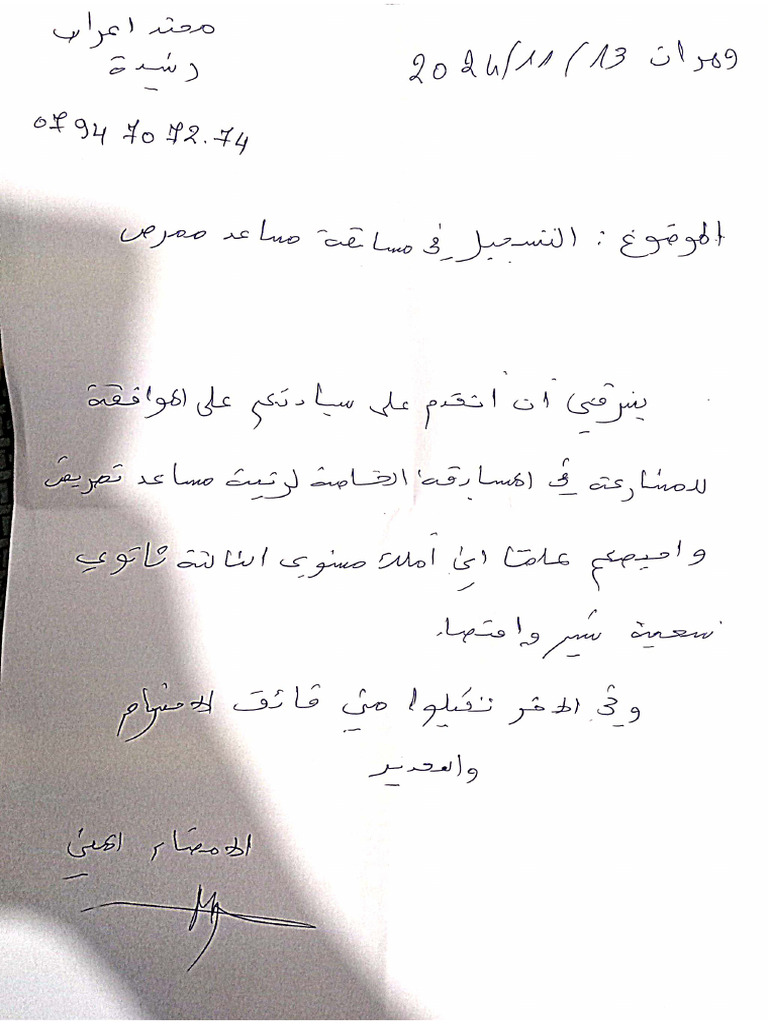 محند اعراب
رشيدة
وهران 13/11/2024
07 94 70 72.74
الموضوع : التسجيل في مسابقة مساعد ممرض
يشرفني أن أتقدم على سيادتكم على الموافقة
للمشاركة في المسابقة الخاصة لرتبة مساعد تمريض
واحيطكم علما اني أملك مستوى الثالثة ثانوي
شعبة تسير واقتصاد
وفي الاخر تقبلوا مني فائق الاحترام
والتقدير
الامضاء المعني